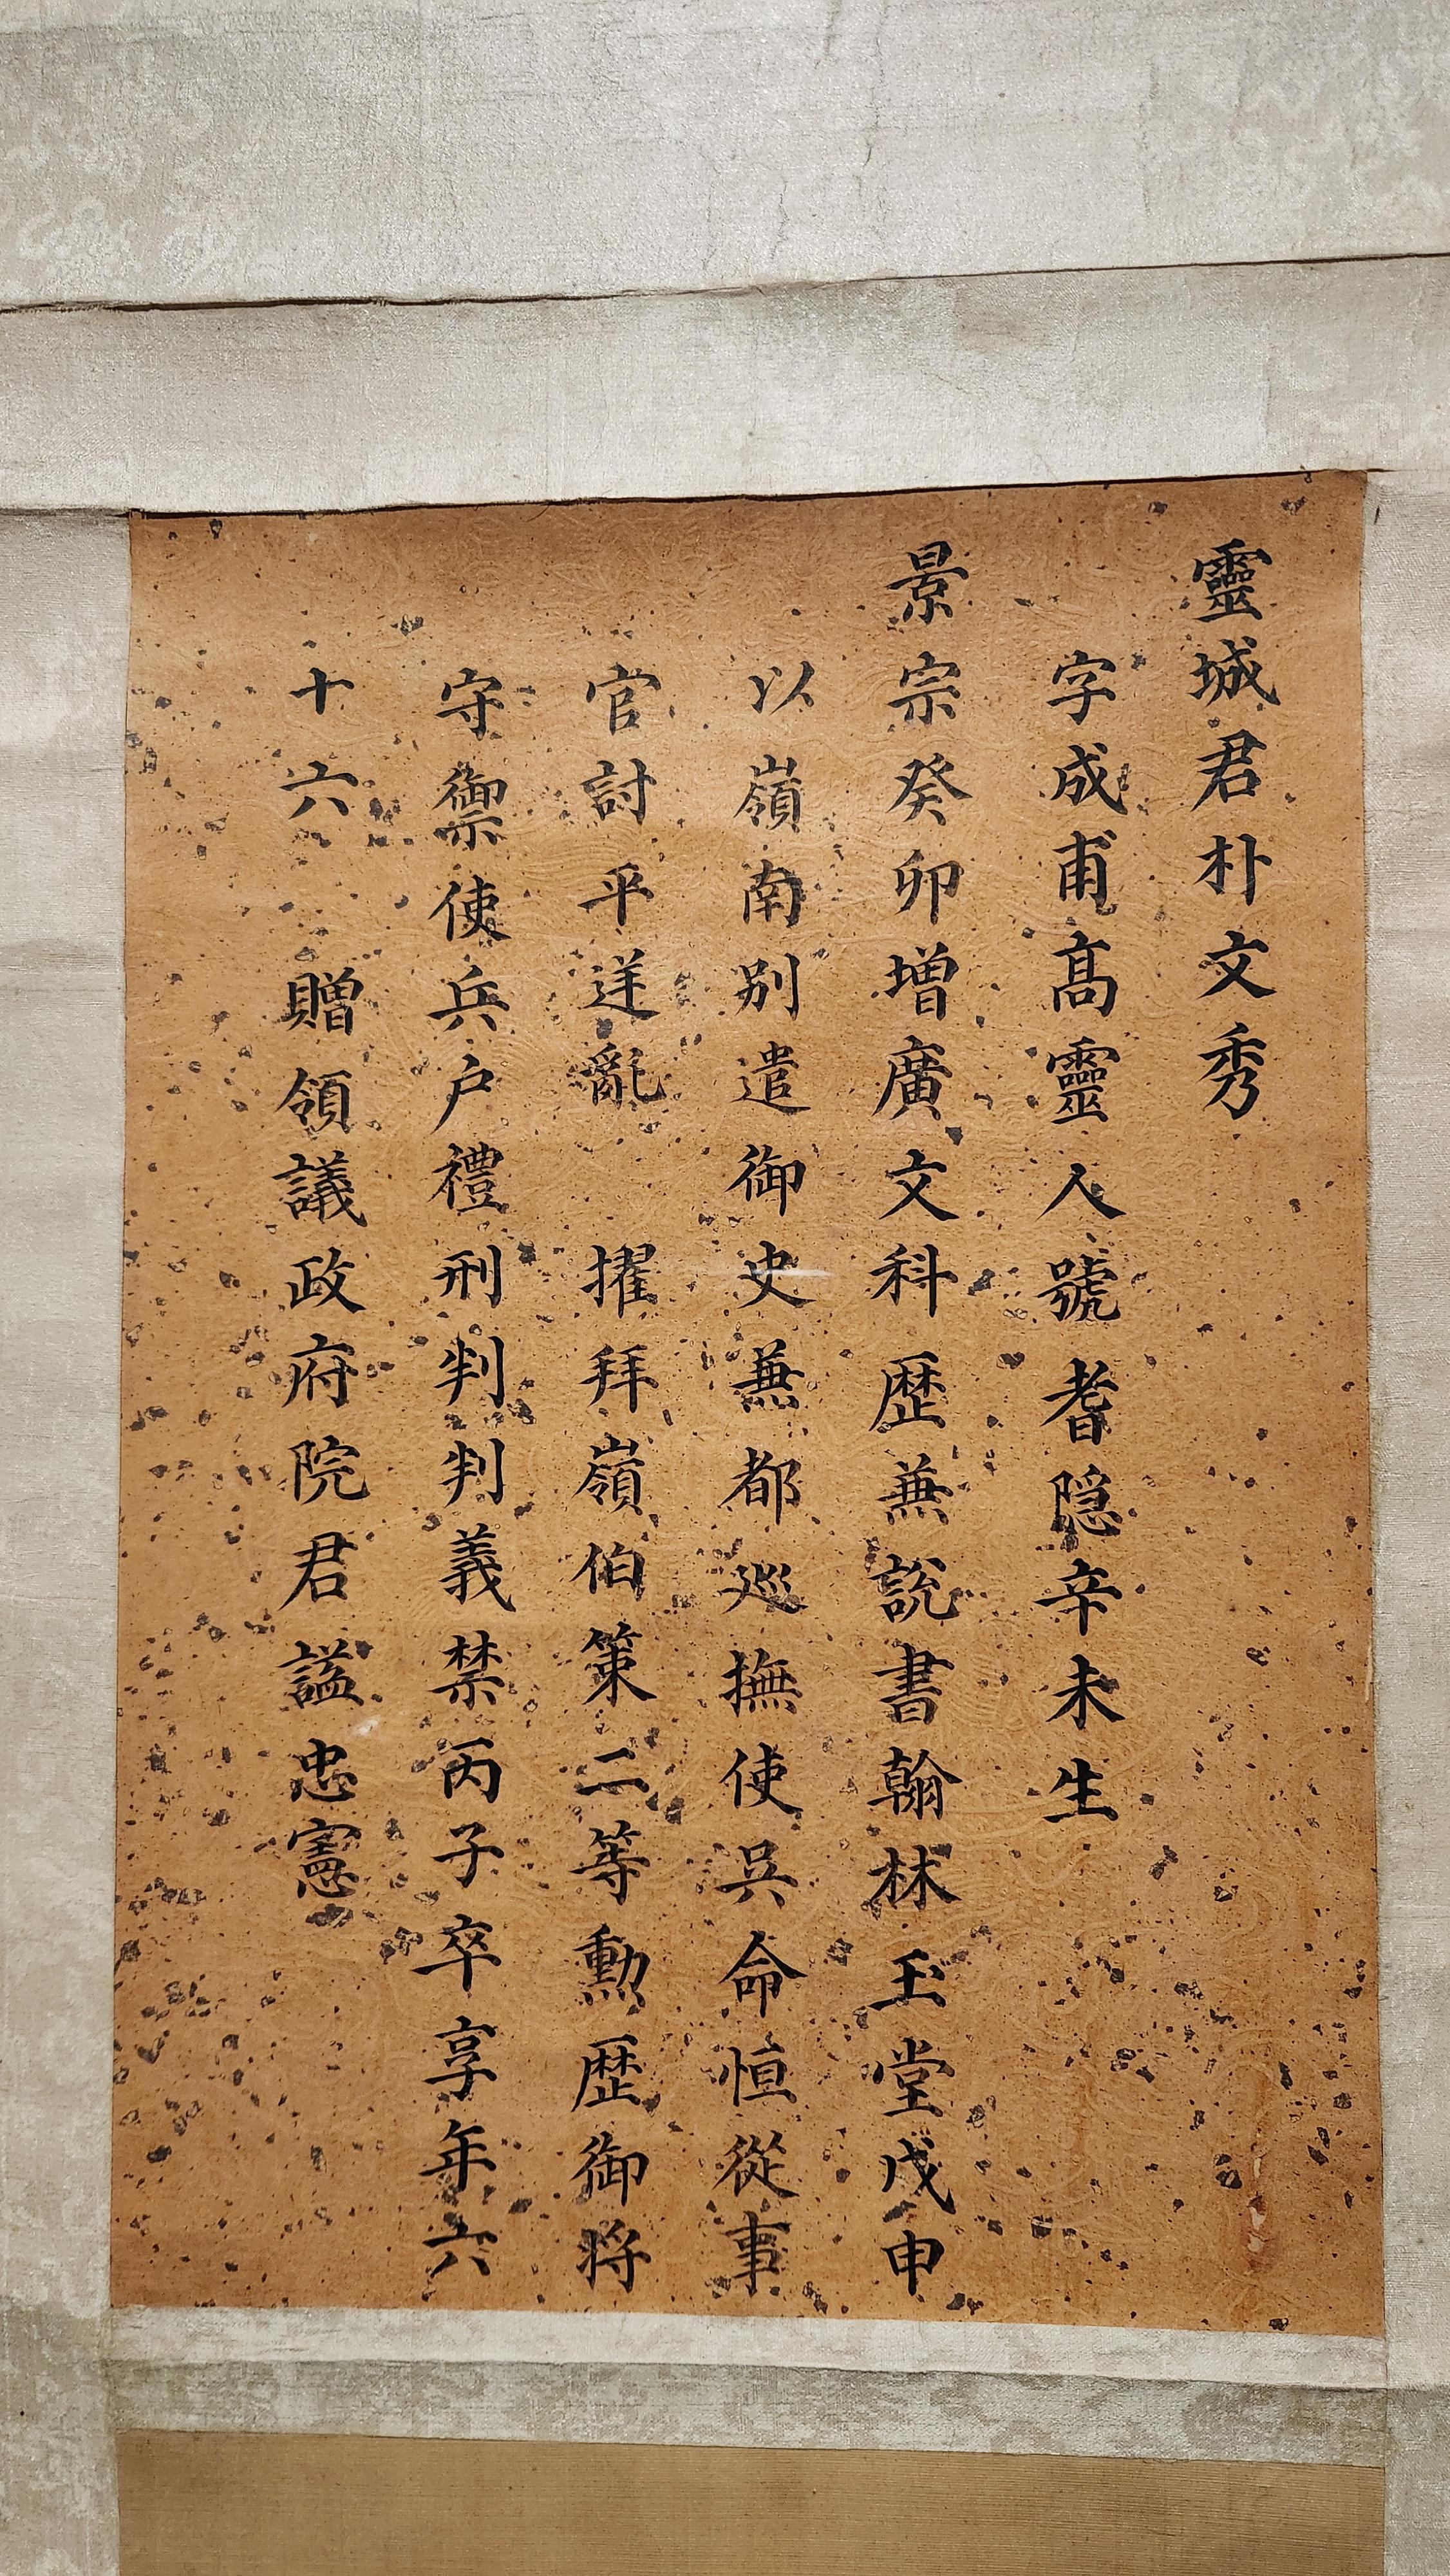 靈城君朴文秀
字成甫髙靈人號耆隱辛未生
景宗癸卯增廣文科歷兼說書翰林玉堂戊申
以嶺南別遣御史兼都巡撫使吳命恒從事
官討平逆亂 擢拜嶺伯策二等勳歷御將
守禦使兵戶禮刑判判義禁丙子卒享年六
十六 贈領議政府院君謚忠憲